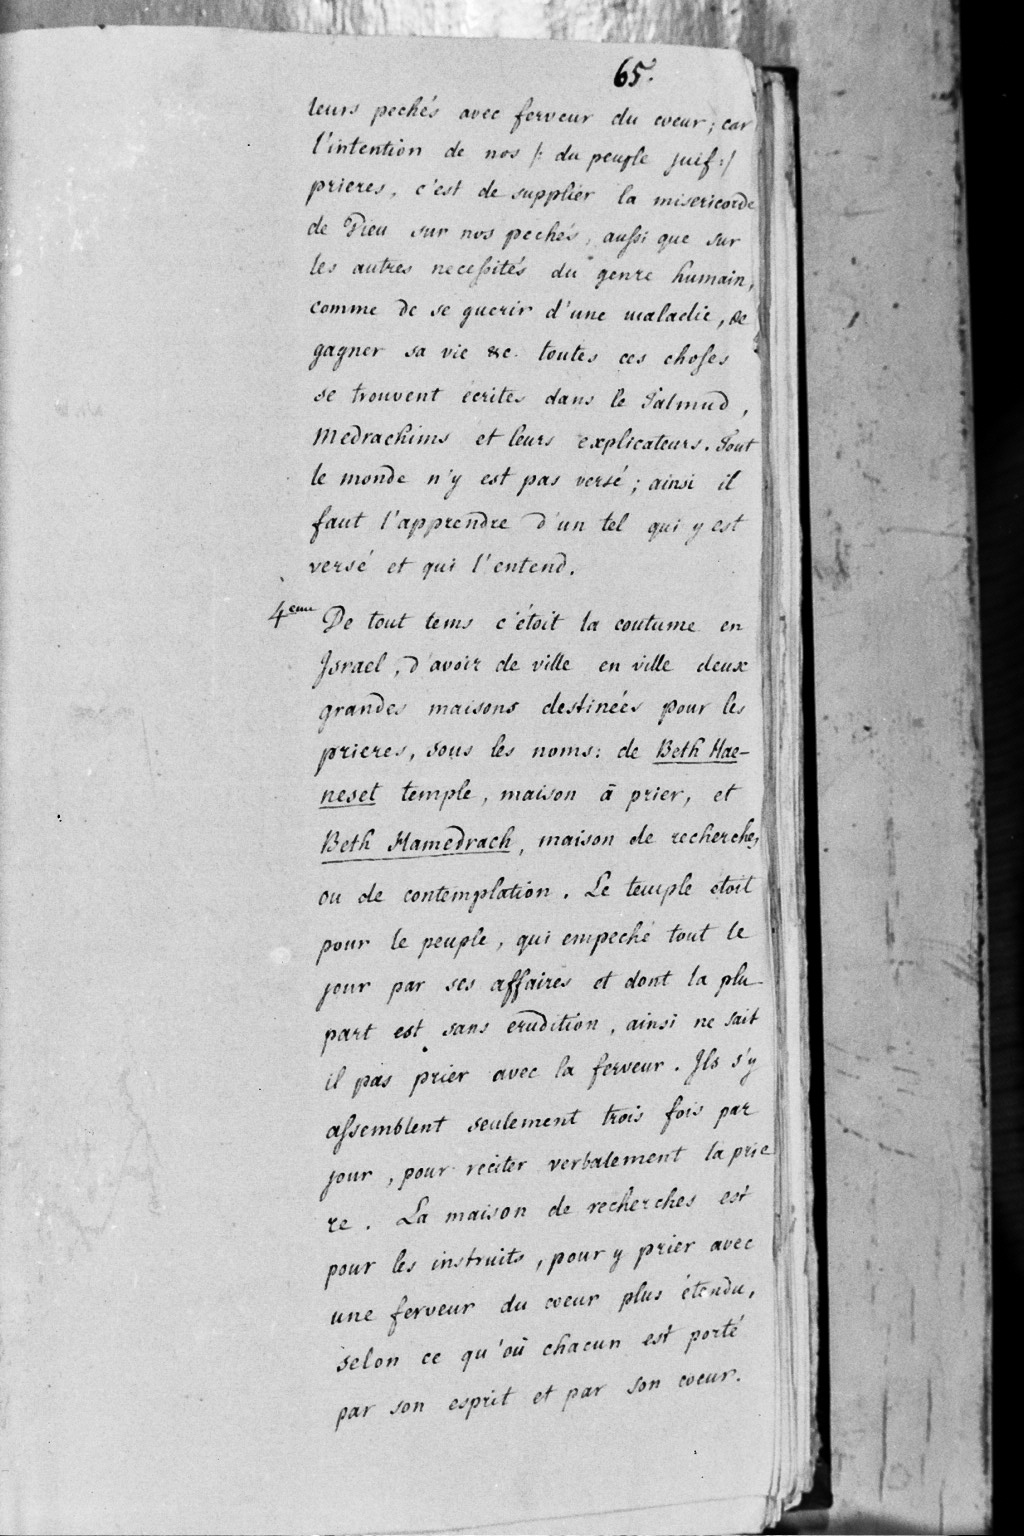 65.
leurs pechés avec ferveur du coeur; car
l'intention de nos /: du peuple juif :/
prieres, c'est de supplier la misericorde
de Dieu sur nos pechés, aussi que sur
les autres necessités du genre humain,
comme de se guerir d'une maladie, de
gagner sa vie &c. toutes ces choses
se trouvent écrites dans le Talmud,
Medrachims et leurs explicateurs. Tout
le monde n'y est pas versé; ainsi il
faut l'apprendre d'un tel qui y est
versé et qui l'entend.
4eme De tout tems c'étoit la coutume en
Israel, d'avoir de ville en ville deux
grandes maisons destinées pour les
prieres, sous les noms: de Beth Hae-
neset temple, maison à prier, et
Beth Hamedrach, maison de recherches
ou de contemplation. Le temple etoit
pour le peuple, qui empeché tout le
jour par ses affaires et dont la plu-
part est sans erudition, ainsi ne sait
il pas prier avec la ferveur. Ils s'y
assemblent seulement trois fois par
jour, pour reciter verbalement la prie
re. La maison de recherches est
pour les instruits, pour y prier avec
une ferveur du coeur plus étendu,
selon ce qu'où chacun est porté
par son esprit et par son coeur.